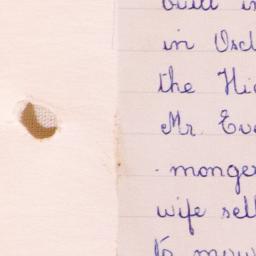 built in
in Osc
the Hi
Mr. Eve
monge
wife sell
to mow